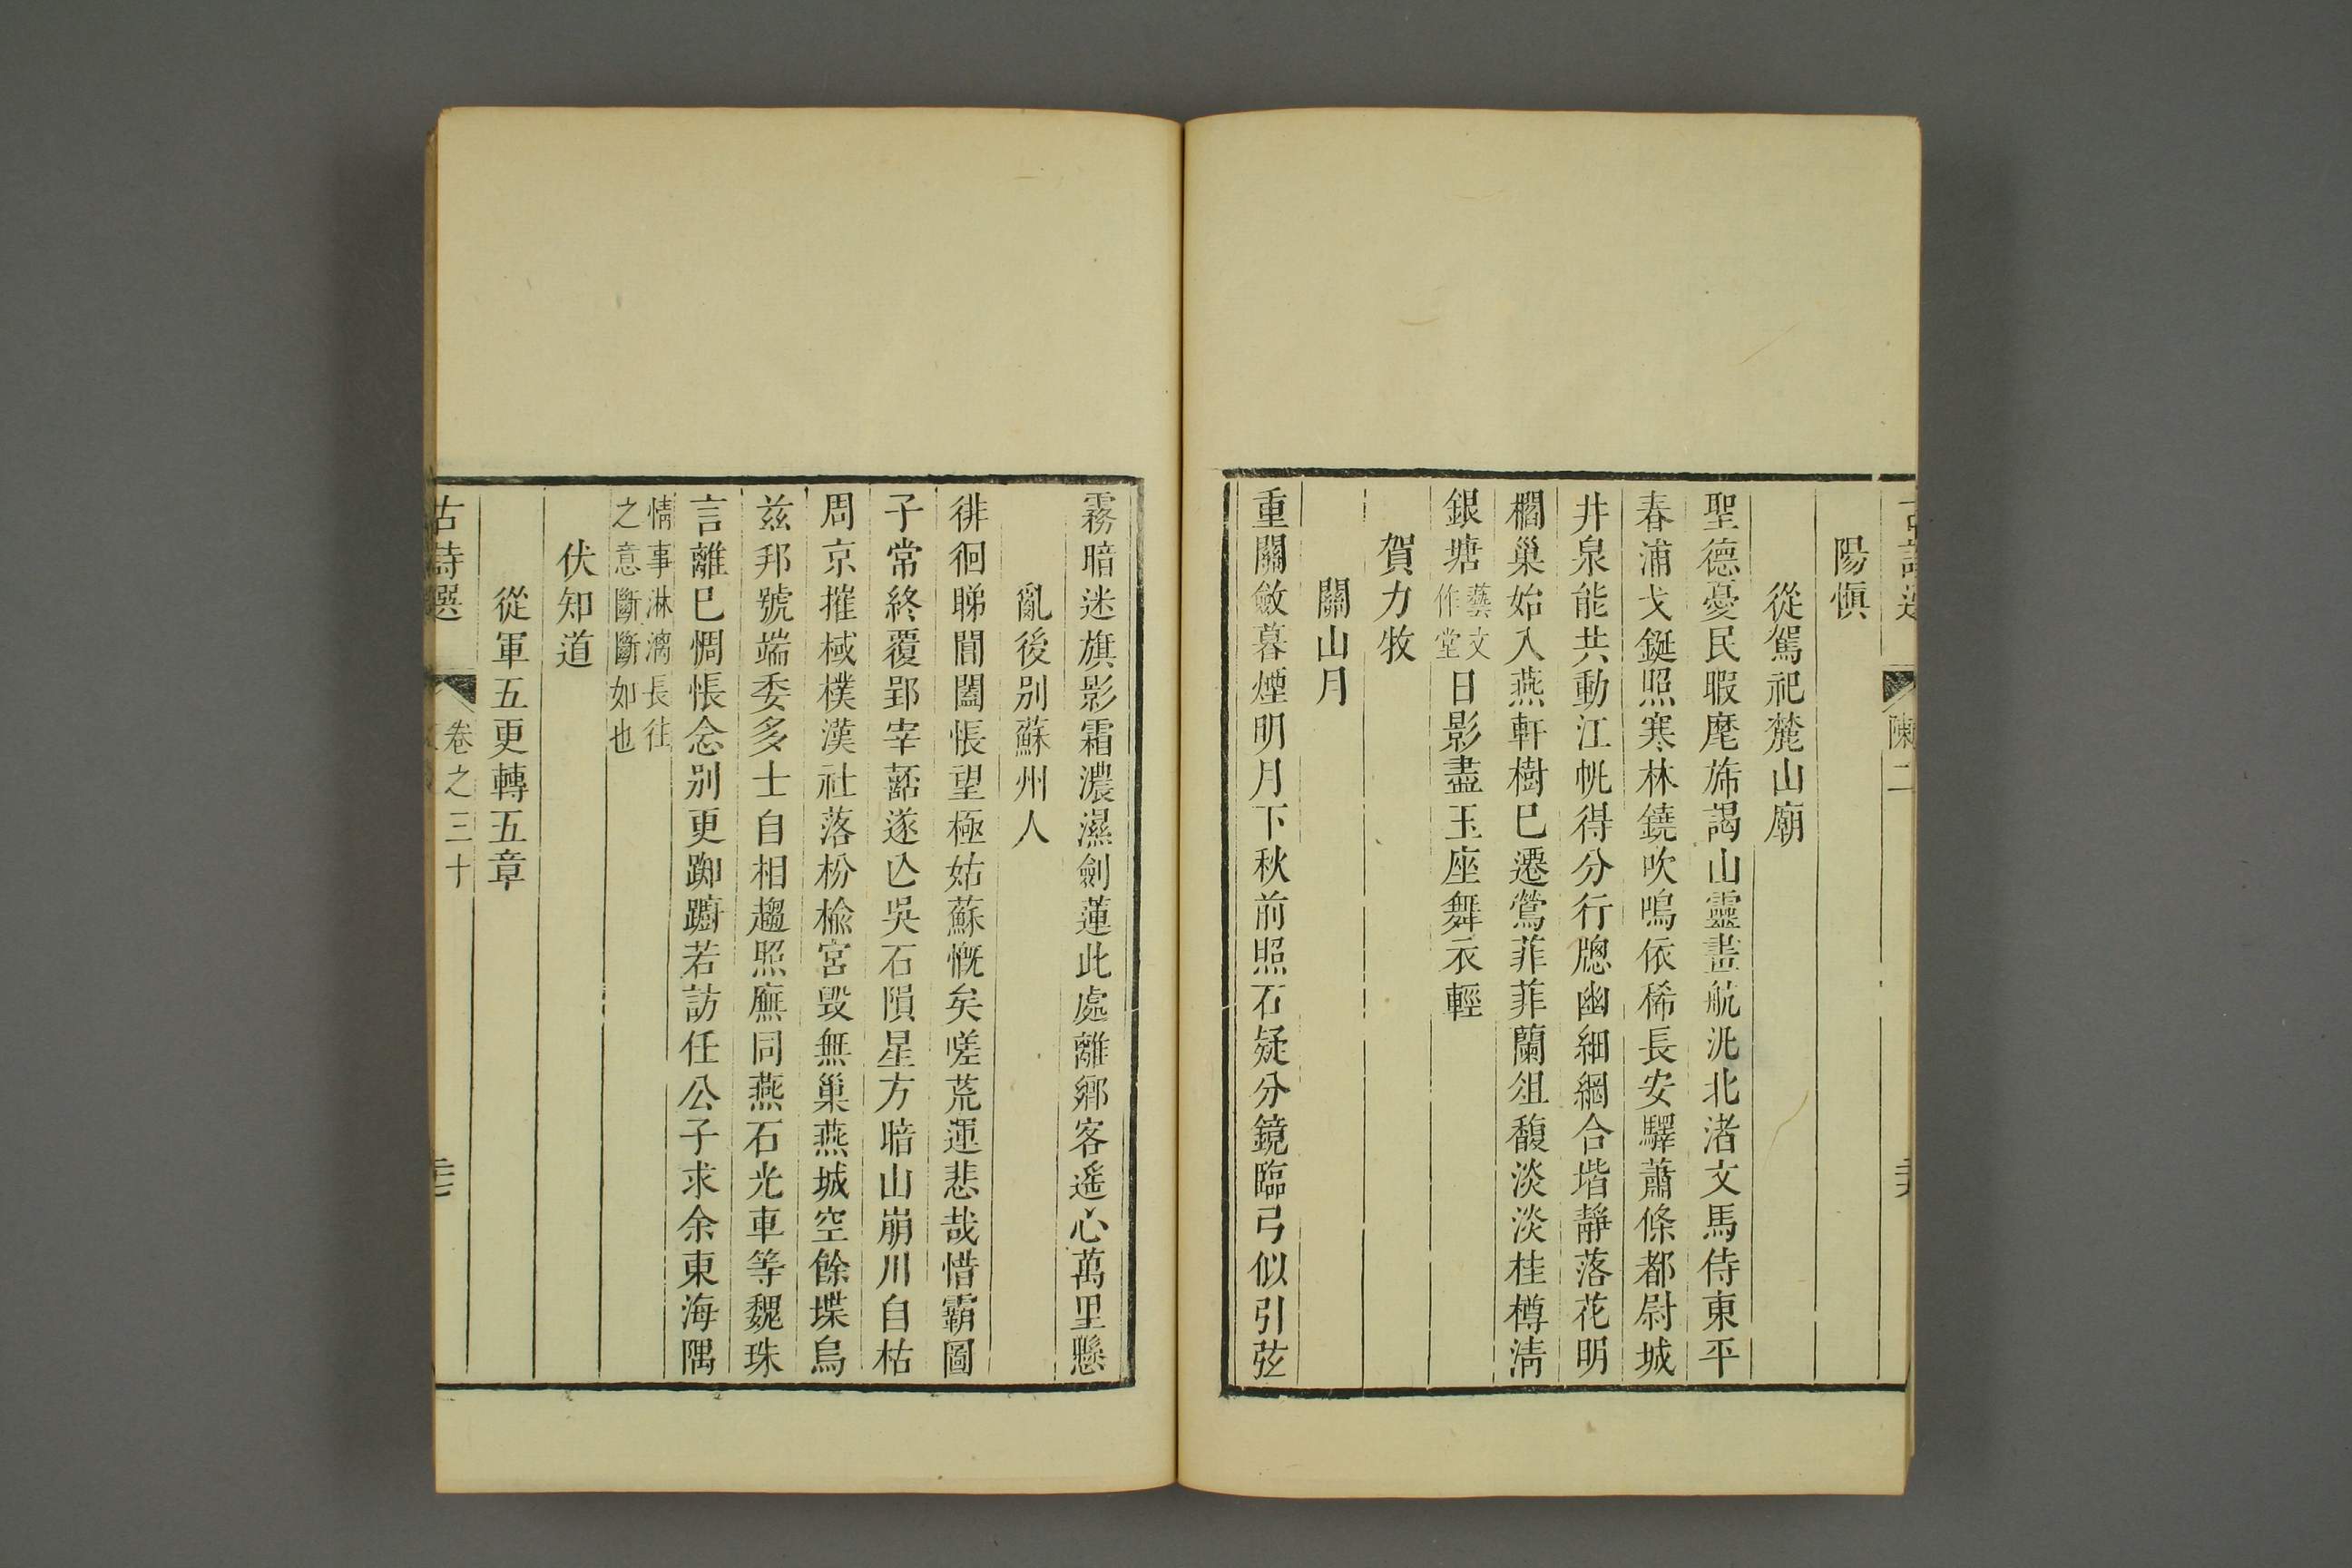 陳二
陽愼
從駕祀麓山廟
聖德憂民暇麾斾謁山靈畫航洮北渚文馬侍東平
春浦戈鋋照寒林鐃吹鳴依稀長安驛蕭條都尉城
井泉能共動江帆得分行牕幽細網合堦靜落花明
櫩巢始入燕軒樹巳遷鶯菲菲蘭俎馥淡淡桂樽淸
銀塘藝文作堂日影盡玉座舞衣輕
賀力牧
關山月
重關斂暮煙明月下秋前照石疑分鏡臨弓似引弦
霧暗迷旗影霜濃濕劍蓮此處離鄉客遙心萬里懸
亂後別蘇州人
徘徊睇閶闔悵望極姑蘇慨矣嗟荒運悲哉惜霸圖
子常終覆郢宰嚭遂亾吳石隕星方暗山崩川自枯
周京摧棫樸漢社落枌楡宮毀無巢燕城空餘堞烏
兹邦號端委多士自相趨照廡同燕石光車等魏珠
言離巳惆悵念別更踟躕若訪任公子求余東海隅
情事淋漓長往
之意斷斷如也
伏知道
從軍五更轉五章
古詩選
卷之三十